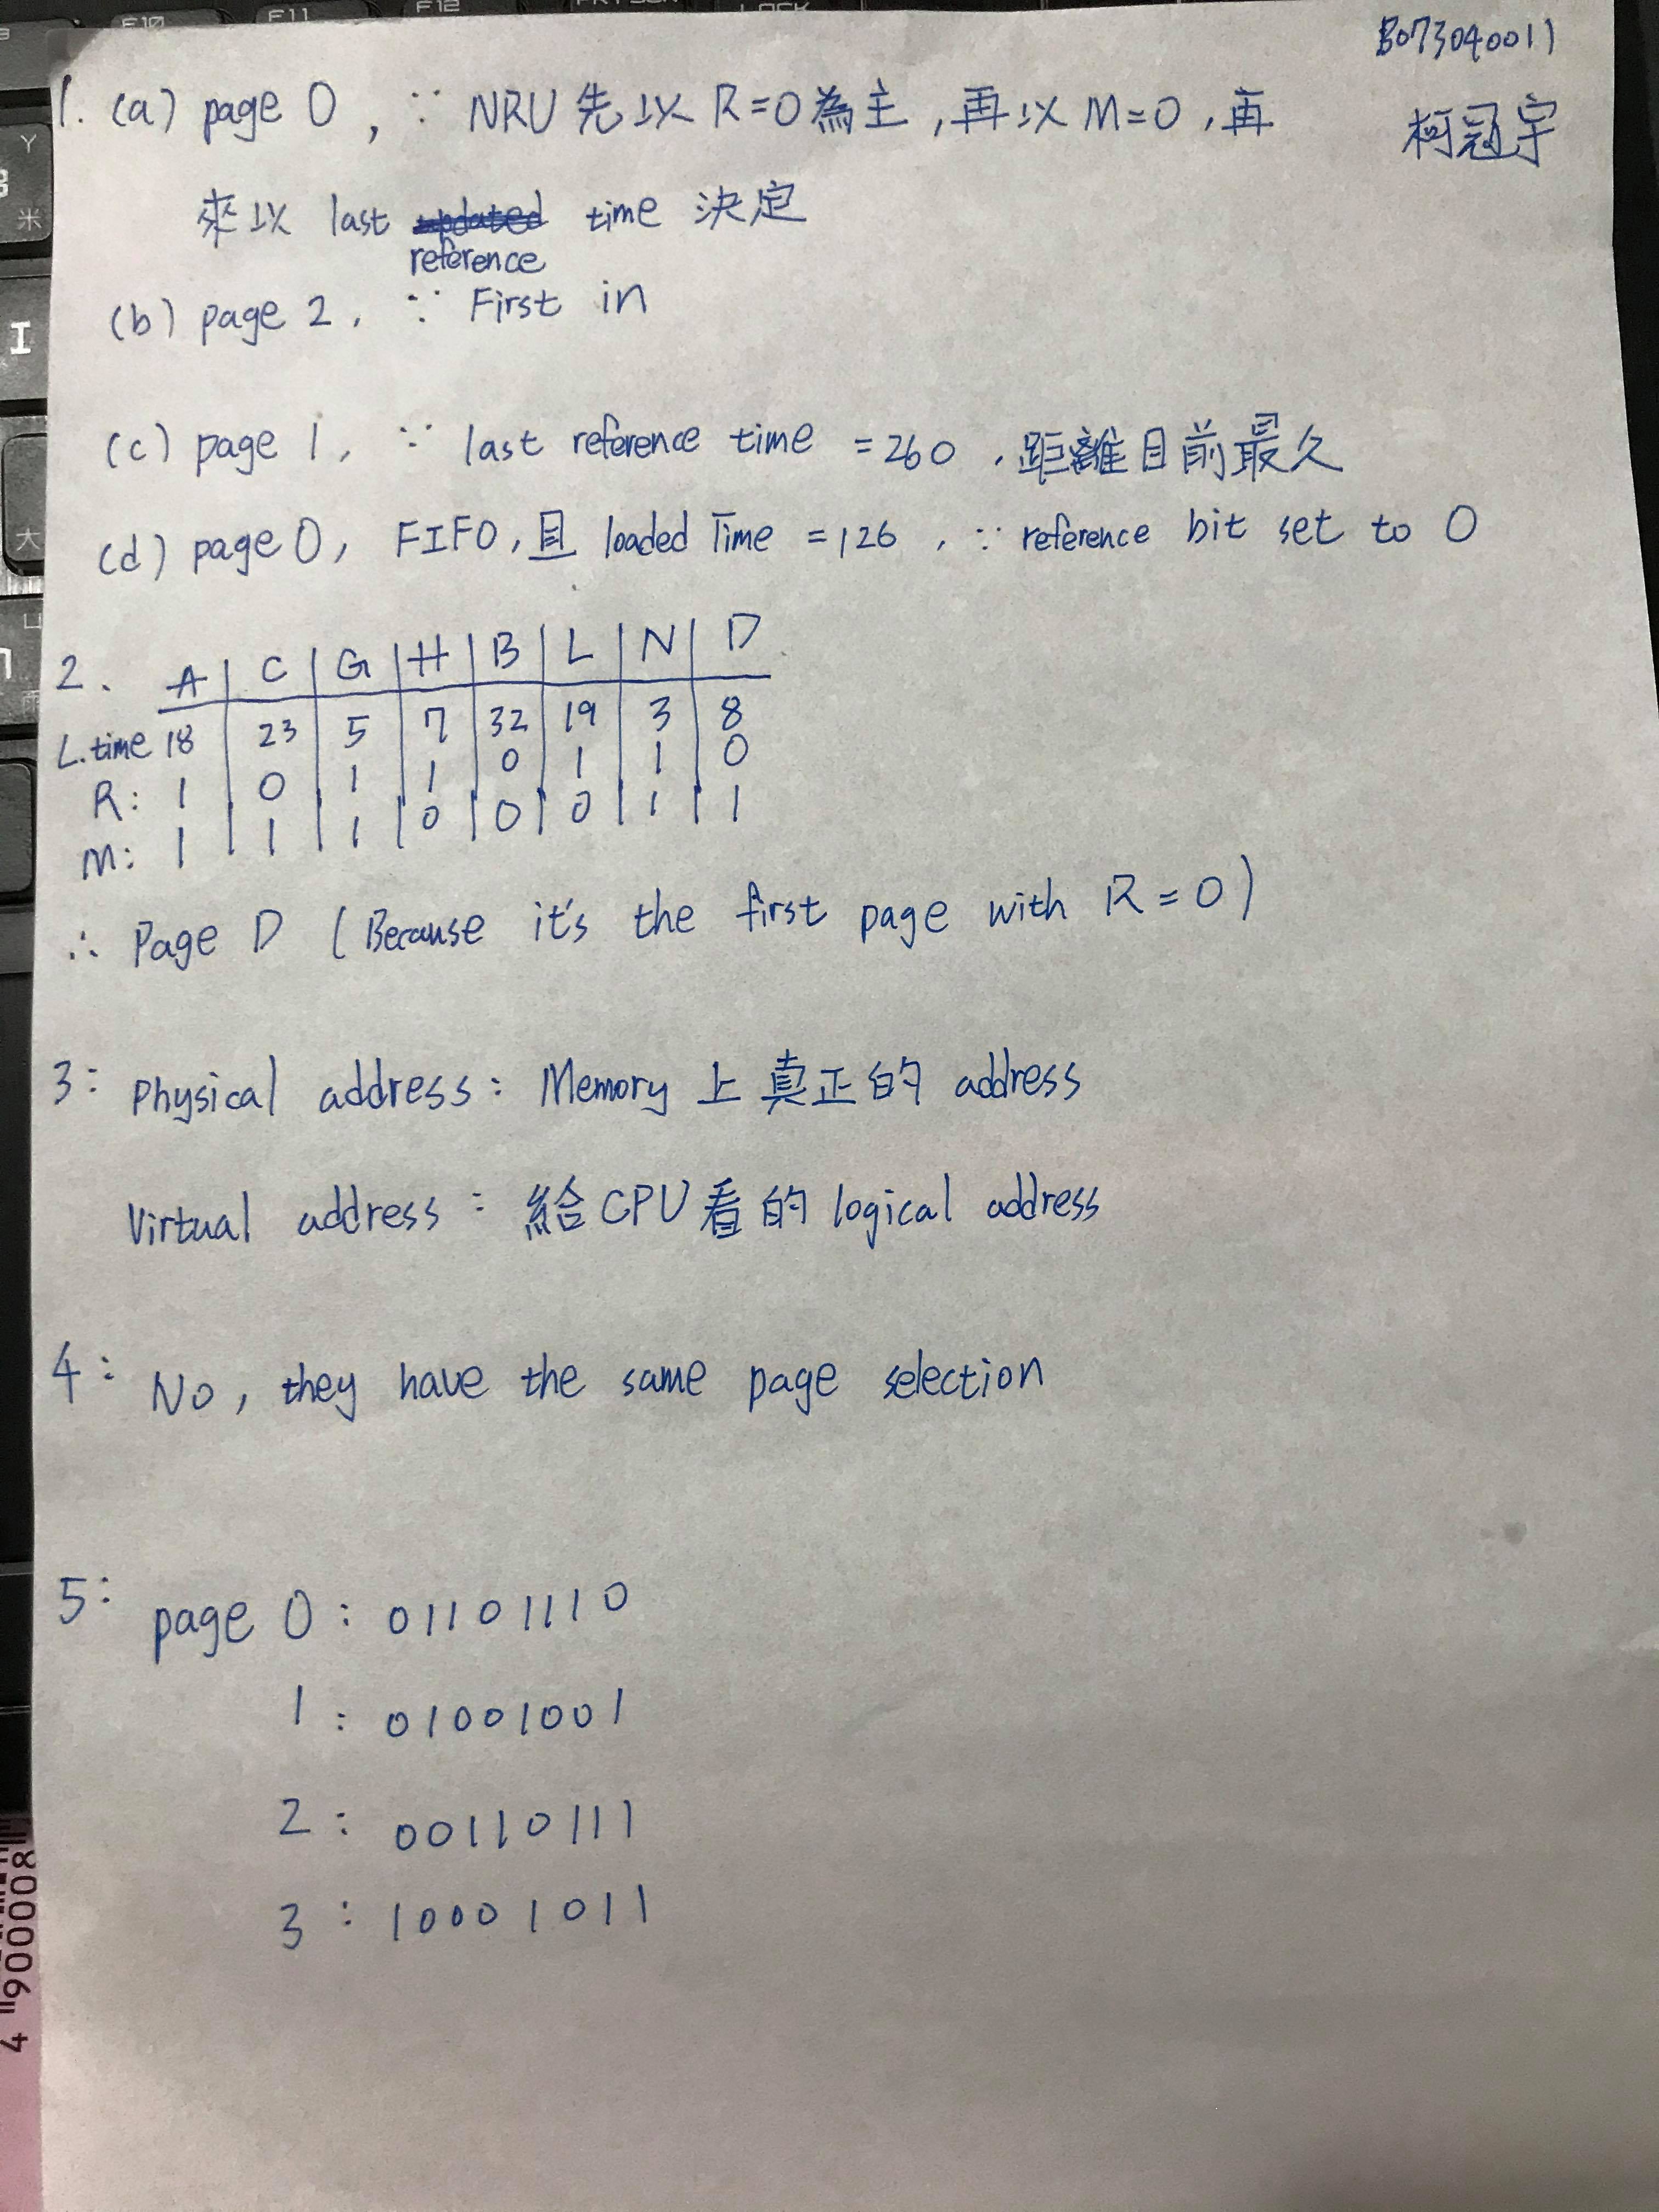 B073040011
柯冠宇
1. (a) page 0, ∵ NRU 先以 R=0為主,再以 M=0,再
來以 last updated time 決定
reference
(b) page 2, ∵ First in
(c) page 1, ∵ last reference time =260,距離目前最久
(d) page 0, FIFO,且 loaded Time =126,∵ reference bit set to 0
2. A C G H B L N D
L.time 18 23 5 7 32 19 3 8
R: 1 0 1 1 0 1 1 0
M: 1 1 1 0 0 0 1 1
∴ Page D (Because it's the first page with R=0)
3: Physical address: Memory 上真正的 address
Virtual address: 給CPU看的 logical address
4: No, they have the same page selection
5: page 0: 01101110
1: 01001001
2: 00110111
3: 10001011
F10
F11
F12
LOCK
Y
米
I
大
4 "900008